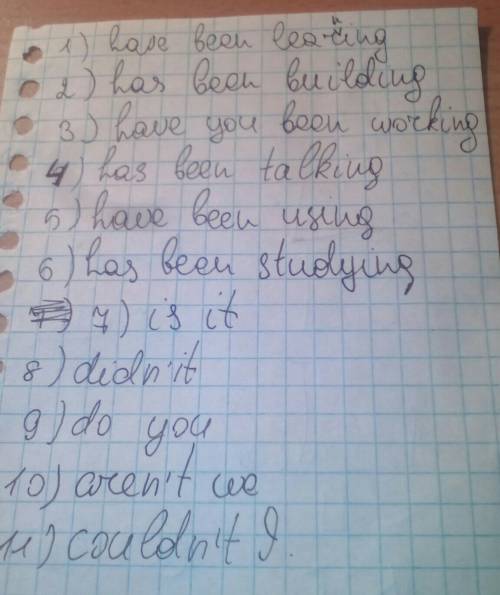 1) have been learning
2) has been building
3) have you been working
4) has been talking
5) have been using
6) has been studying
7) is it
8) didn't it
9) do you
10) aren't we
11) couldn't I.